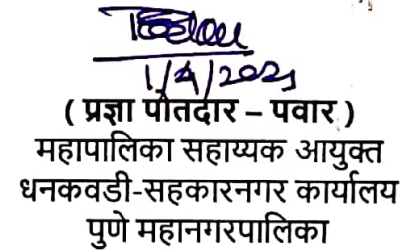 ( प्रज्ञा पोतदार – पवार )
महापालिका सहाय्यक आयुक्त
धनकवडी-सहकारनगर कार्यालय
पुणे महानगरपालिका